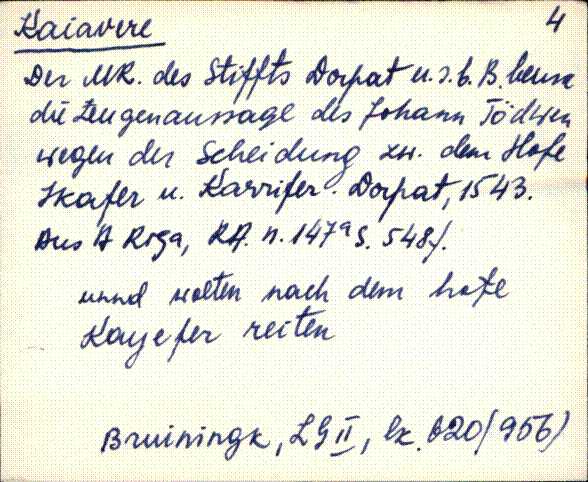 Kaiavere 4
Der MR. des Stiffts Dorpat u. s. b. B.
die Zeugenaussage des Johann Tödwen
wegen der Scheidung zw. dem Hofe
Ikafer u. Karrifer. Dorpat, 1543.
Aus A Riga, RA. n. 147a S. 548f.
unnd wolten nach dem hofe
Kayefer reiten
Bruiningk, LG II, lk. 620 (956)